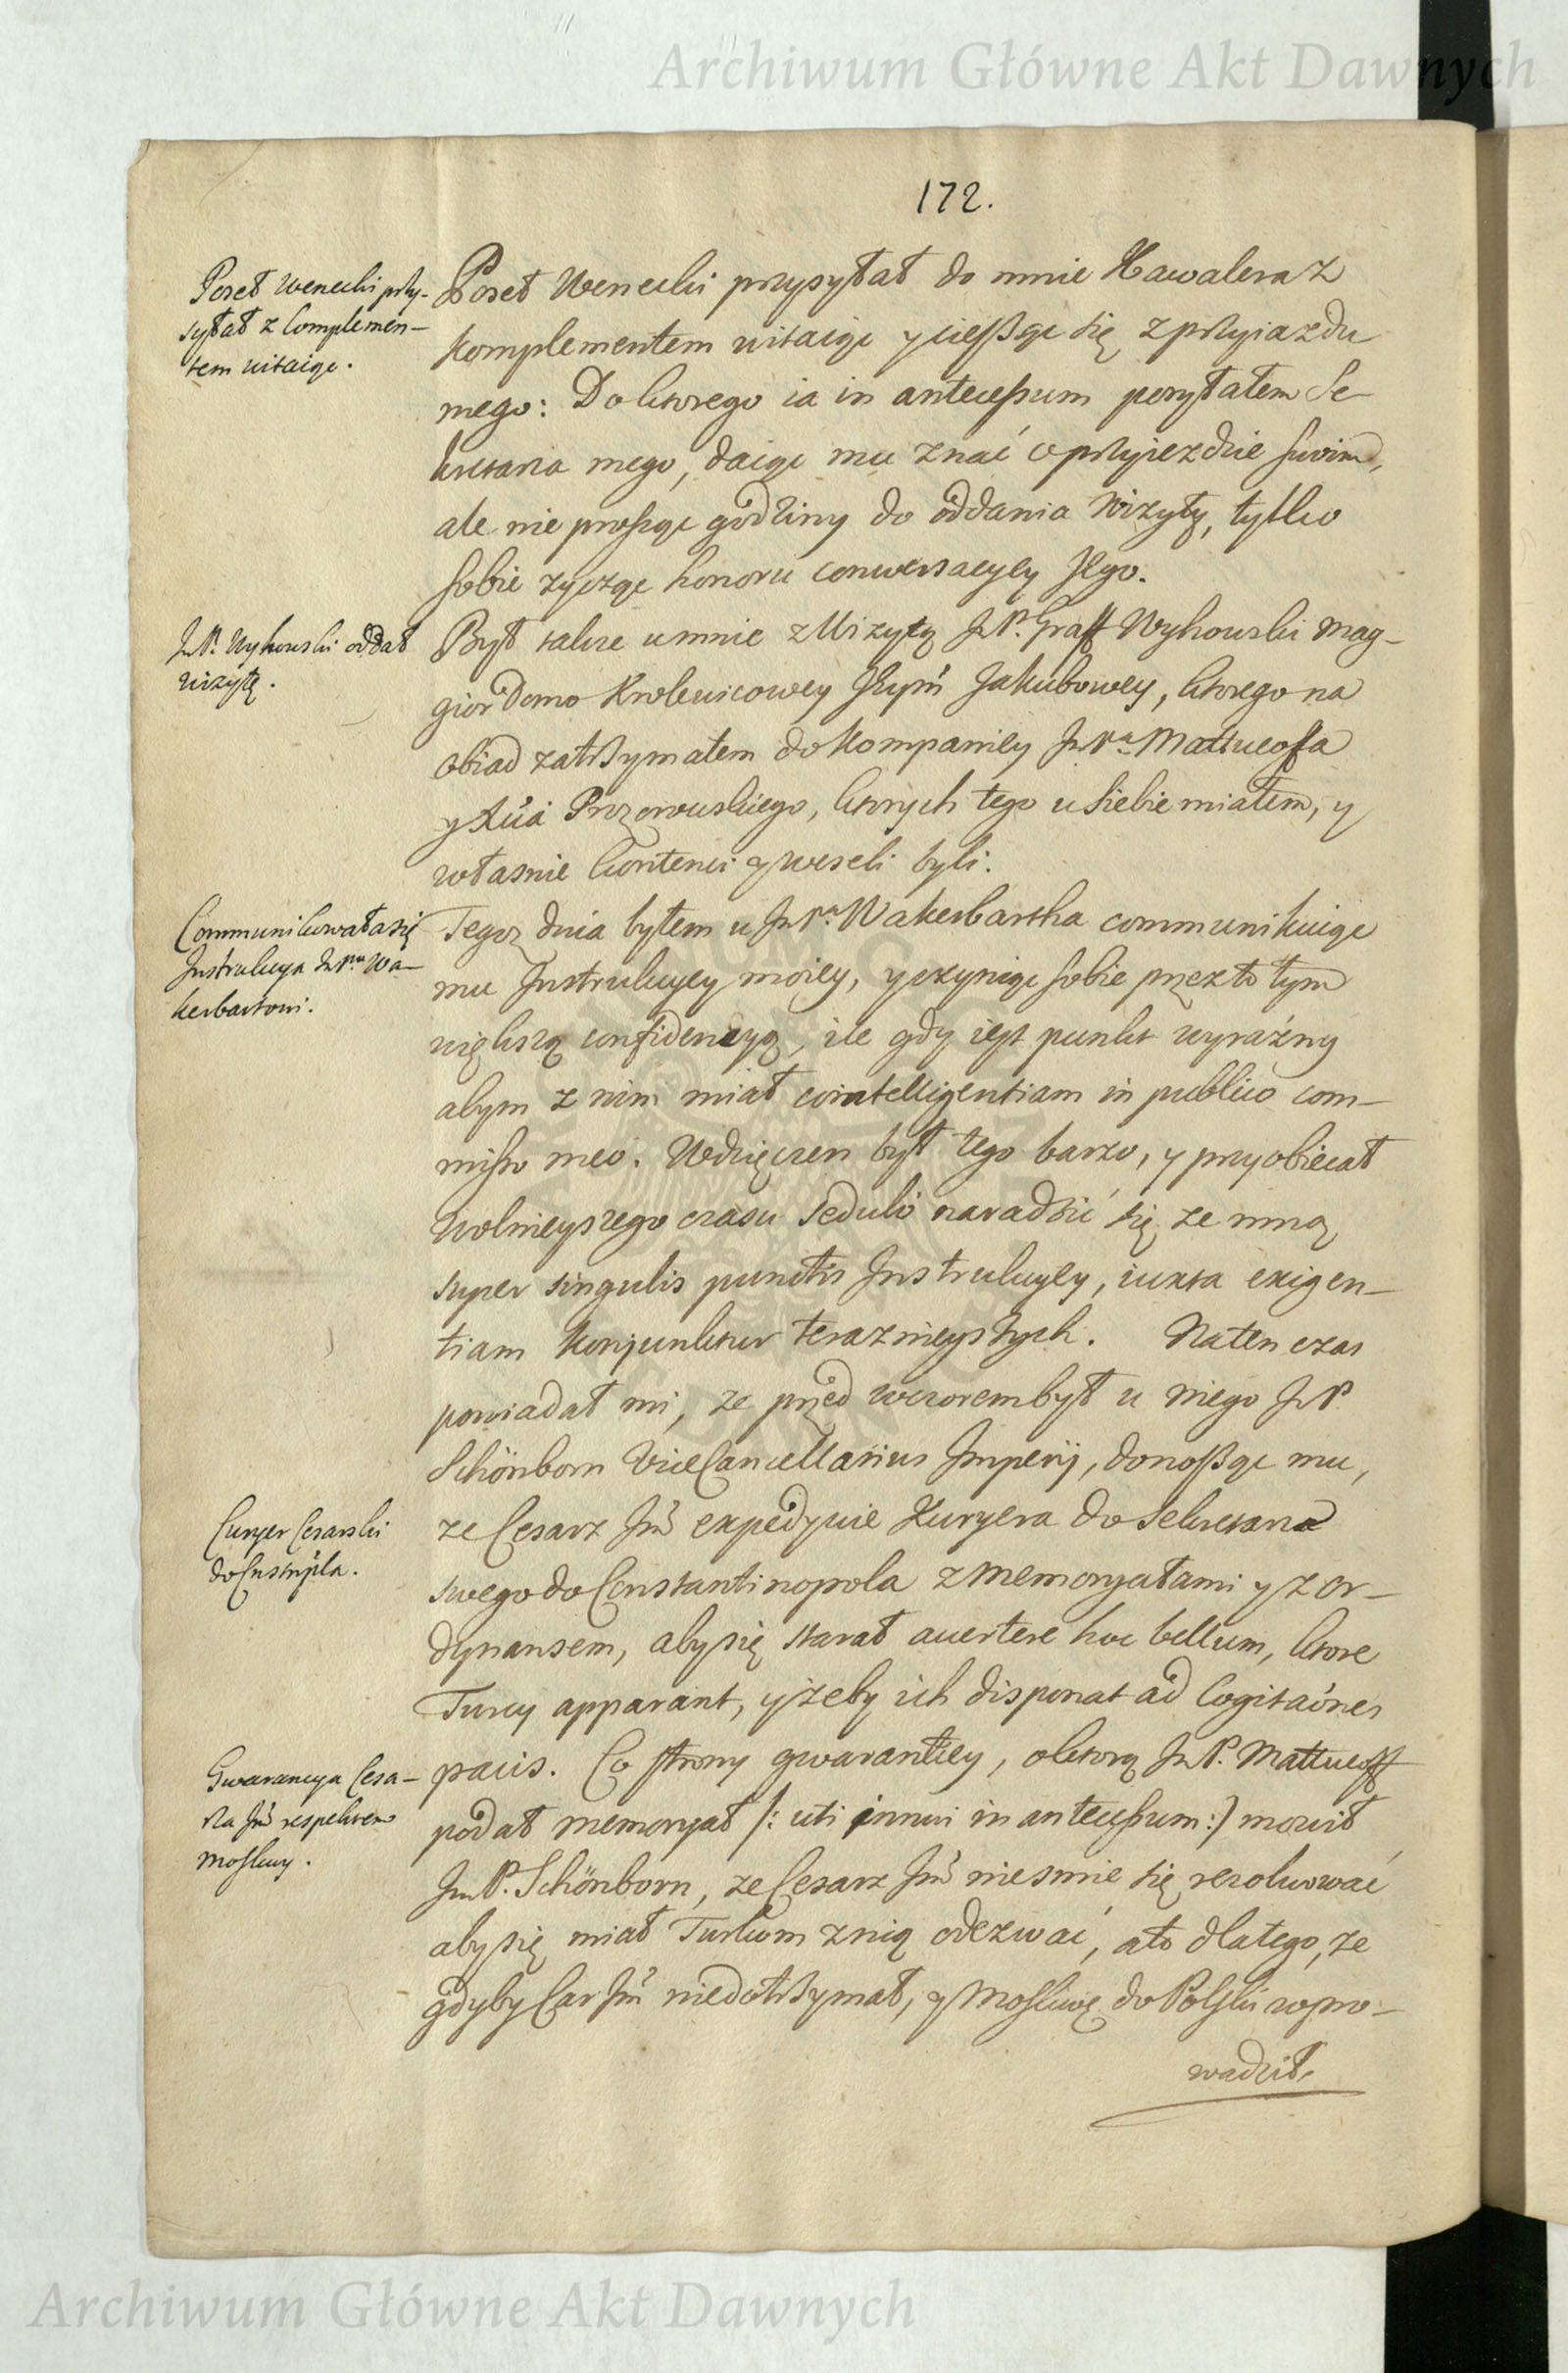 Archiwum Główne Akt Dawnych
172.
Poseł Wenecki przy-
syłał z Complemen-
tem witaiąc.
Poseł Wenecki przysyłał do mnie Kawalera z
komplementem witaiąc y ciesząc się z przyiazdu
mego: Do ktorego ia in antecessum posyłałem Se-
kretarza mego, daiąc mu znać o przyiezdzie swim,
ale nie prosząc godziny do oddania Wizyty, tylko
sobie zycząc honoru conwersacyey Jego.
JmP. Wyhowski oddał
wizytę.
Był także u mnie z Wizytą JmP. Graff Wyhowski Mag-
gior Domo Krolewicowey Jeymci Jakubowey, ktorego na
obiad zatrzymałem do kompaniey Jm Pa Mattueoffa
y Xcia Prozorowskiego, ktorych tego u siebie miałem, y
własnie kontenci y weseli byli.
Communikowała się
Instrukcya JmPnu Wa-
kerbartowi.
Tegoz dnia byłem u JmPa Wakerbartha communikuiąc
mu Instrukcyey moiey, y czyniąc sobie przezto tym
większą confidencyą, ile gdy iest punkt wyraźny
abym z nim miał cointelligentiam in publico com-
misso meo. Wdzięczen był tego barzo, y przyobiecał
wolnieyszego czasu seduló naradzić się ze mną
super singulis punctis Instrukcyey, iuxta exigen-
tiam konjunktur teraznieyszych. Naten czas
powiadał mi, ze przed wczorem był u niego JmP.
Schönborn ViceCancellarius Imperij, donosząc mu,
Curyer Cesarski
do Cnstnpla.
ze Cesarz Jmć expedyuie Kuryera do Sekretarza
swego do Constantinopola z memoryałami y z or-
dynansem, aby się starał auertere hoc bellum, ktore
Turcy apparant, y żeby ich disponat ad Cogitaones
Gwarancya Cesa-
rza Jmć respektem
Moskwy.
pacis. Co strony gwarantiey, o ktorą JmP. Mattueoff
podał memoryał /: uti innui in antecessum :/ mowił
JmP. Schönborn, ze Cesarz Jmć niesmie się rezolwować
aby się miał Turkom z nią odezwać, a to dlatego, ze
gdyby Car Jmć niedotrzymał, y Moskwę do Polski wpro-
wadził,
Archiwum Główne Akt Dawnych